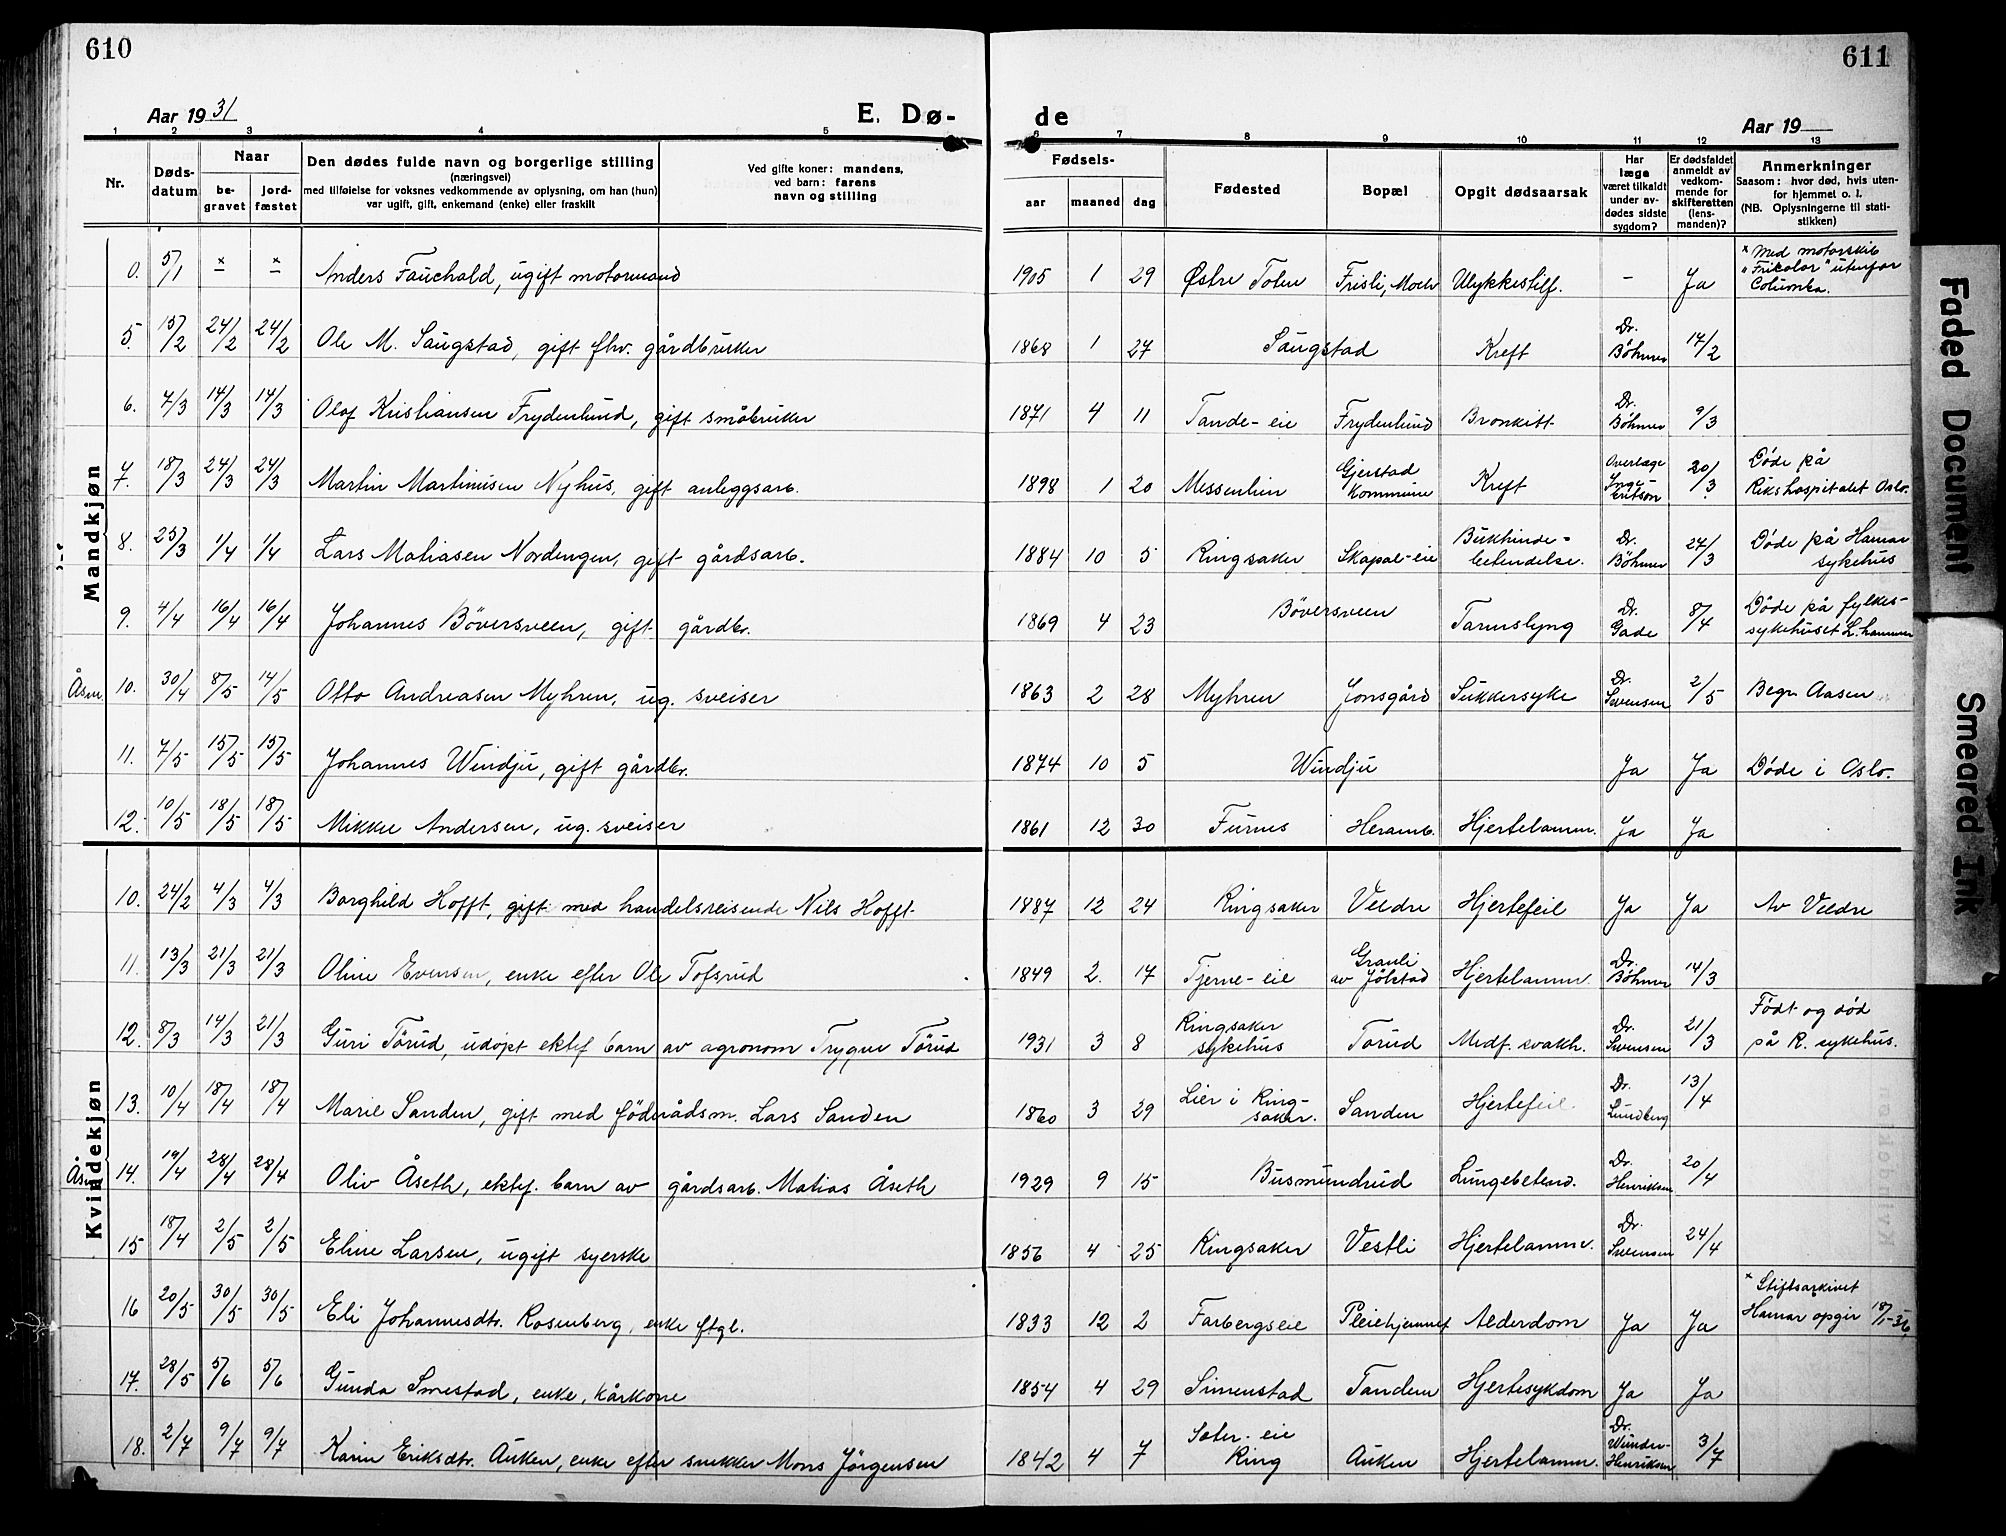 610
611
Aar 1931
E. Dø-
de
Aar 19
1 2 3 4 5 6 7 8 9 10 11 12 13
Nr.
Døds-
datum
Naar
be-
gravet
jord-
fæstet
Den dødes fulde navn og borgerlige stilling
(næringsvei)
med tilføielse for voksnes vedkommende av oplysning, om han (hun)
var ugift, gift, enkemand (enke) eller fraskilt
Ved gifte koner: mandens,
ved barn: farens
navn og stilling
Fødsels-
aar maaned dag
Fødested
Bopæl
Opgit dødsaarsak
Har
læge
været tilkaldt
under av-
dødes sidste
sygdom?
Er dødsfaldet
anmeldt av
vedkom-
mende for
skifteretten
(lens-
manden)?
Anmerkninger
Saasom: hvor død, hvis uten-
for hjemmet o. l.
(NB. Oplysningerne til stati-
stikken)
Mandkjøn
0. 5/1 × × Anders Fauchald, ugift motormand 1905 1 29 Østre Toten Frisli, Moelv Ulykkestilf. - Ja × Med motorskib
"Tricolor" utenfor
Columba.
5. 15/2 24/2 24/2 Ole M. Saugstad, gift fhv. gårdbruker 1868 1 27 Saugstad Kreft Dr. Böhmer 14/2
6. 7/3 14/3 14/3 Olaf Kristiansen Frydenlund, gift småbruker 1871 4 11 Tande-eie Frydenlund Bronkitt Dr. Böhmer 9/3
7. 18/3 24/3 24/3 Martin Martinusen Nyhus, gift anleggsarb. 1898 1 20 Messenlien Gjerstad Kommune Kreft Overlæge 20/3 Døde på
Rikshospitalet Oslo.
8. 23/3 1/4 1/4 Lars Matiasen Nordengen, gift gårdsarb. 1884 10 5 Ringsaker Skapal-eie Bukhinde-
betendelse. Dr. Böhmer 27/3 Døde på Hamar
sykehus
9. 4/4 16/4 16/4 Johannes Böversveen, gift gårdbr. 1869 4 23 Böversveen Tarmslyng Dr. Gade 8/4 Døde på fylkes-
sykehuset L.hammer
Åsen 10. 30/4 8/5 14/5 Otto Andreasen Myhren, ug. sveiser 1863 2 28 Myhren Jonsgård Sukkersyke Dr. Svensen 2/5 Begr. Aasen
11. 7/5 15/5 15/5 Johannes Windju, gift gårdbr. 1874 10 5 Windju Ja Ja Døde i Oslo.
12. 10/5 18/5 18/5 Mikkel Andersen, ug. sveiser 1861 12 30 Furnes Heramb. Hjertelamm. Ja Ja
Kvindekjøn
10. 24/2 4/3 4/3 Borghild Hofft, gift med handelsreisende Nils Hofft 1887 12 24 Ringsaker Veldre Hjertefeil Ja Ja Av Veldre
11. 13/3 21/3 21/3 Oline Evensen, enke efter Ole Tofsrud 1849 2. 17 Tjerne-eie Grauli
av Jölstad Hjertelamm. Dr. Böhmer 14/3
12. 8/3 14/3 21/3 Guri Törud, udöpt ektef. barn av agronom Trygve Törud 1931 3 8 Ringsaker
sykehus Törud Medf. svakh. Dr. Svensen 21/3 Født og død
på R. sykehus.
13. 10/4 18/4 18/4 Marie Sanden, gift med föderådsm. Lars Sanden 1860 3 29 Lier i Ring-
saker. Sanden Hjertefeil. Dr. Lundberg 13/4
Åsen 14. 19/4 28/4 28/4 Oliv Åseth, ektef. barn av gårdsarb. Matias Åseth 1929 9 15 Busmundrud Lungebetend. Dr. Henriksen 20/4
15 18/4 2/5 2/5 Eline Larsen, ugift syerske 1856 4 25 Ringsaker Vestli Hjertelamm. Dr. Svensen 24/4
16 20/5 30/5 30/5 Eli Johannesdtr. Rosenberg, enke ftgl. 1833 12 2 Farbergseie Pleiehjemmet Alderdom Ja Ja × Stiftsarkivet
Hamar opgir 18/1-36
17. 28/5 5/6 5/6 Gunda Smestad, enke, kårkone 1854 4 29 Simenstad Tanden Hjertesykdom Ja Ja
18. 2/7 9/7 9/7 Karin Eriksdtr. Auken, enke efter snekker Mons Jörgensen 1842 4 7 Sater-eie
Ring Auken Hjertelamm. Dr. Wunder-
Henriksen 3/7
Faded Document
Smeared Ink